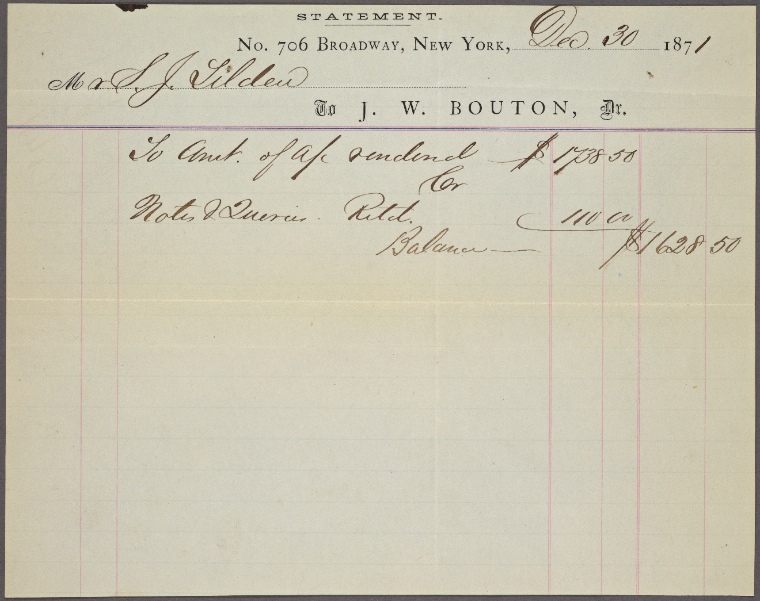 STATEMENT.
No. 706 Broadway, New York, Dec. 30 1871
Mr S. J. Tilden
To J. W. BOUTON, Dr.
To Amt. of a/c rendered $ 1738 50
Cr
Notes & Queries. Retd. 110 00
Balance $1628 50